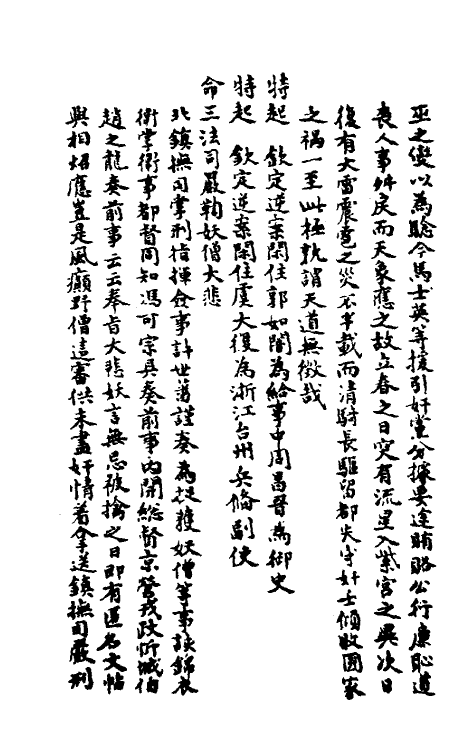 巫之變以為驗今馬士英等援引奸黨分據要途賄賂公行廉恥道
喪人事舛戾而天象應之故立春之日突有流星入紫宮之異次日
復有大雷震電之災不半載而清騎長驅留都失守奸士傾敗國家
之禍一至此極孰謂天道無徵哉
特起 欽定逆案閑住郭如闇為給事中周昌晉為御史
特起 欽定逆案閑住虞大復為浙江台州兵備副使
命三法司嚴鞠妖僧大悲
北鎮撫司掌刑指揮僉事許世蕃謹奏為捉獲妖僧等事該錦衣
衛掌衛事都督同知馮可宗具奏前事內開總督京營戎政忻城伯
趙之龍奏前事云云奉旨大悲妖言無忌被擒之日即有匿名文帖
與相炤應豈是風癲野僧這審供未盡奸情着拿送鎮撫司嚴刑